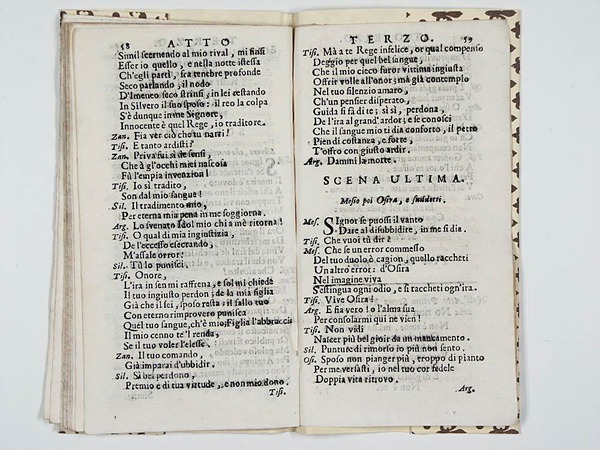 58 ATTO
Simil scernendo al mio rival, mi finsi
Esser io quello, e nella notte istessa
Ch'egli parti, fra tenebre profonde
Seco parlando, il nodo
D'Imeneo seco strinsi, in lei restando
In Silvero il suo sposo: il reo la colpa
S'è dunque in me Signore,
Innocente è quel Rege, io traditore.
Zan. Fia ver ciò che tu narri?
Tis. E tanto ardisti?
Zan. Priva fui sì de sensi,
Che à gl'occhi miei nascosa
Fù l'empia invenzion!
Tis. Io sì tradito,
Son dal mio sangue!
Sil. Il tradimento mio,
Per eterna mia pena in me soggiorna.
Arg. Lo svenato Idol mio chi a mè ritorna!
Tis. O qual di mia ingiustizia,
De l'eccesso esecrando,
M'assale orror!
Sil. Tù lo punisci.
Tis. Onore,
L'ira in sen mi raffrena, e sol mi chiede
Il tuo ingiusto perdon; de la mia figlia
Già che il sei, sposo resta: il fallo tuo
Con eterno rimprovero punisca
Quel tuo sangue, ch'è mio; Figlia l'abbraccia
Il mio cenno te'l renda,
Se il tuo voler l'elesse.
Zan. Il tuo comando,
Già imparai d'ubbidir.
Sil. Sì bel perdono,
Premio e di tua virtude, e non mio dono.
Tis.
TERZO. 59
Tis. Mà a te Rege infelice, or qual compenso
Deggio per quel bel sangue,
Che il mio cieco furor vittima ingiusta
Offrir volle all'onor; mà già contemplo
Nel tuo silenzio amaro,
Ch'un pensier disperato,
Guida si fà di te; sì sì, perdona,
De l'ira al grand'ardor; e se conosci
Che il sangue mio ti dia conforto, il petto
Pien di costanza, e forte,
T'offro con giusto ardir.
Arg. Dammi la morte.
SCENA ULTIMA.
Messo poi Osira, e suddetti.
Mes. SIgnor se puossi il vanto
Dare al disubbidire, in me si dia.
Tis. Che vuoi tù dir?
Mes. Che se un error commesso
Del tuo duolo, è cagion, quello raccheti
Un altro error: d'Osira
Nel imagine viva
S'estingua ogni odio, e si traccheti ogn'ira.
Tis. Vive Osira!
Arg. E fia vero! o l'alma sua
Per consolarmi qui ne vien!
Tis. Non vidi
Nascer più bel gioir da un mancamento.
Sil. Punture di rimorso io più non sento.
Osi. Sposo non pianger più, troppo di pianto
Per me versasti, io nel tuo cor fedele
Doppia vita ritrovo.
Arg.